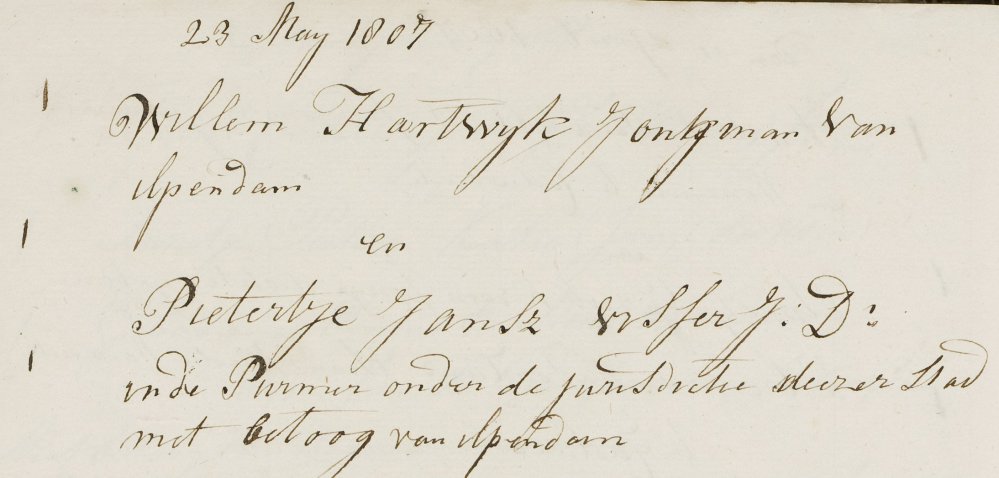 23 May 1807
Willem Hartwyk Jonkman van
ilpendam
en
Pietertje Jansz visser J: D:
inde Purmer onder de jurisdictie deezer stad
met betoog van ilpendam